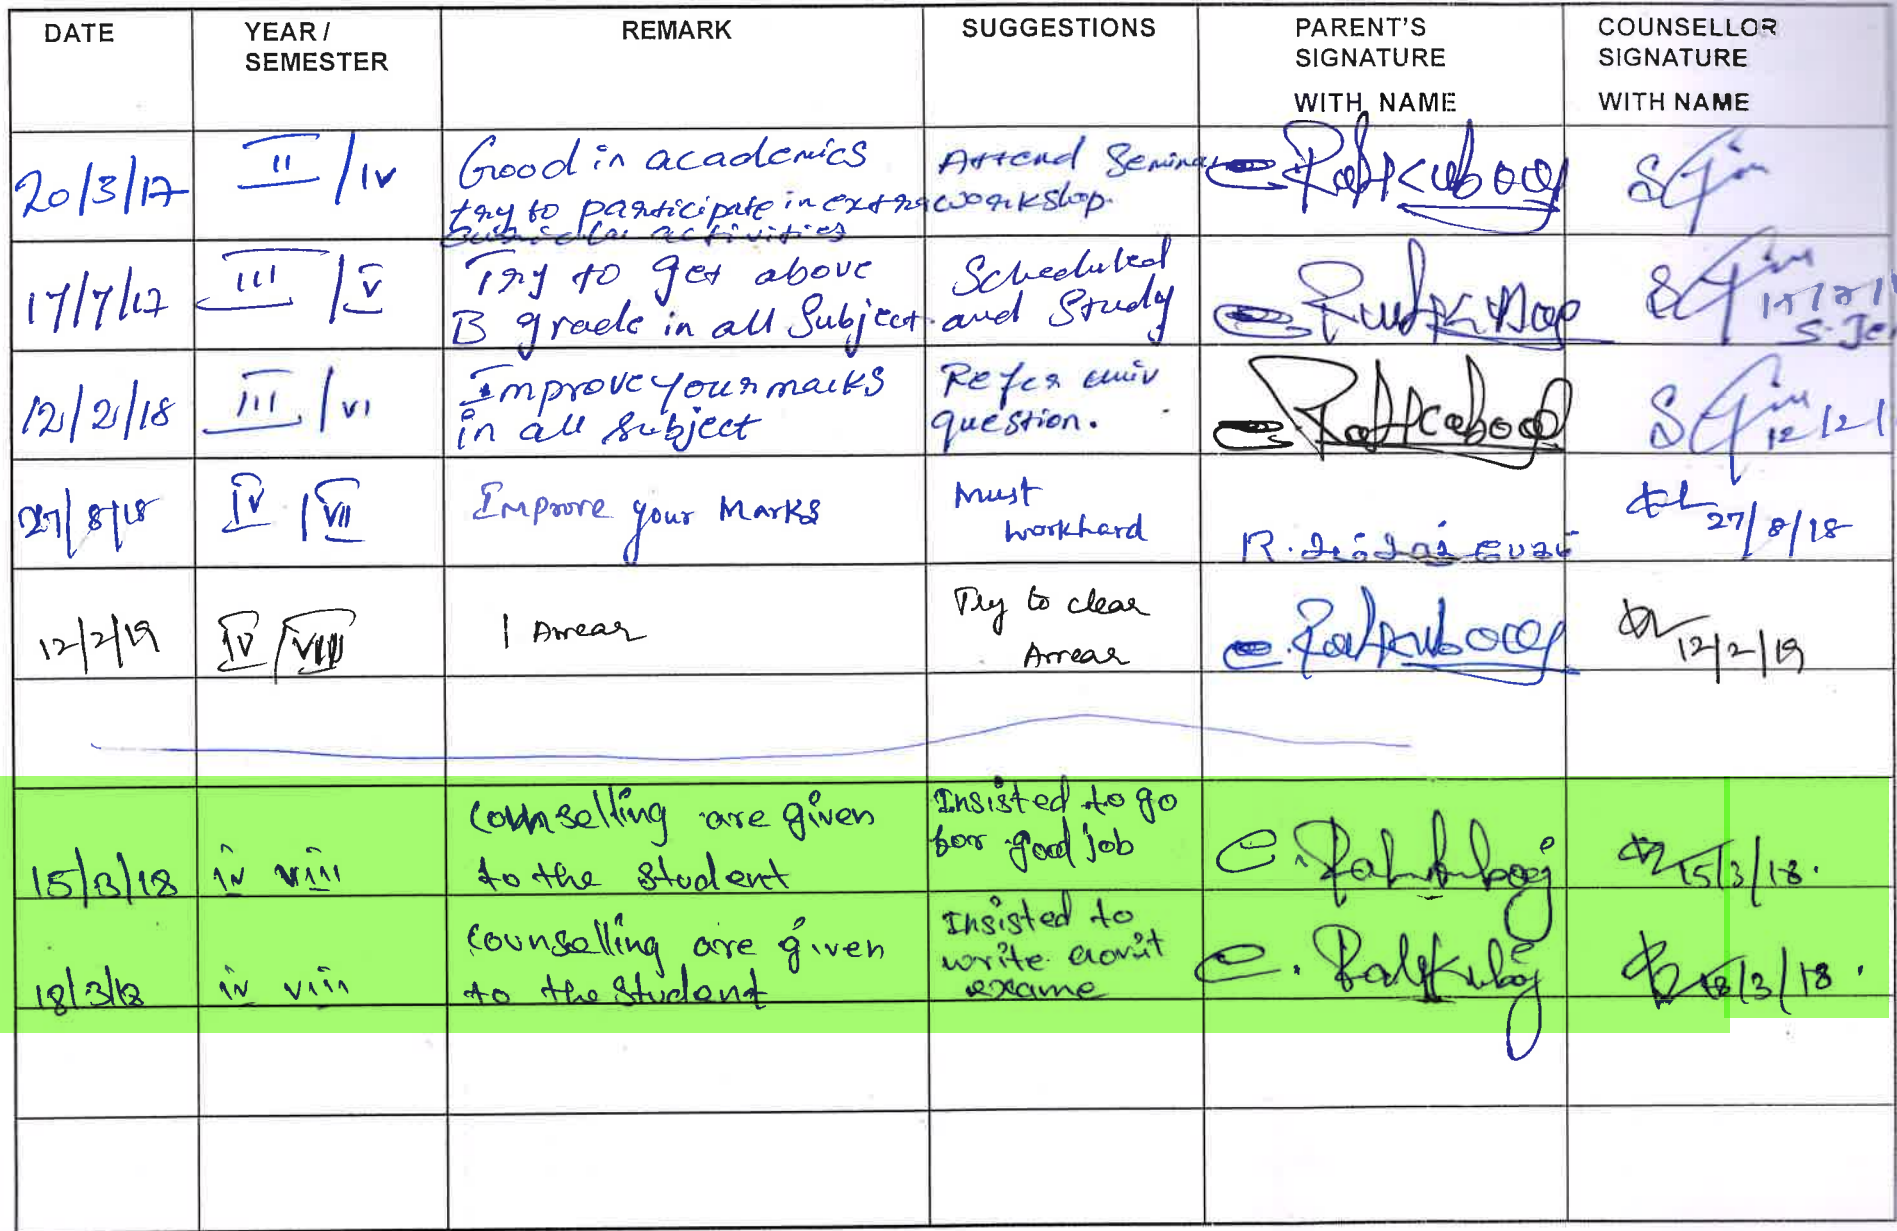 DATE
YEAR /
SEMESTER
REMARK
SUGGESTIONS
PARENT'S
SIGNATURE
WITH NAME
COUNSELLOR
SIGNATURE
WITH NAME
20/3/17
II / IV
Good in academics
try to participate in extra
curricular activities
Attend Seminar
workshop.
17/7/17
III / V
Try to get above
B grade in all Subject.
Scheduled
and Study
12/2/18
III / VI
Improve your marks
in all subject
Refer univ
question.
12/2/1
27/8/18
IV / VII
Improve your Marks
Must
workhard
27/8/18
12/2/19
IV / VIII
1 Arrear
Try to clear
Arrear
12/2/19
15/3/18
iv viii
counselling are given
to the student
Insisted to go
for good job
15/3/18.
18/3/18
iv viii
counselling are given
to the student
Insisted to
write
exame
18/3/18.